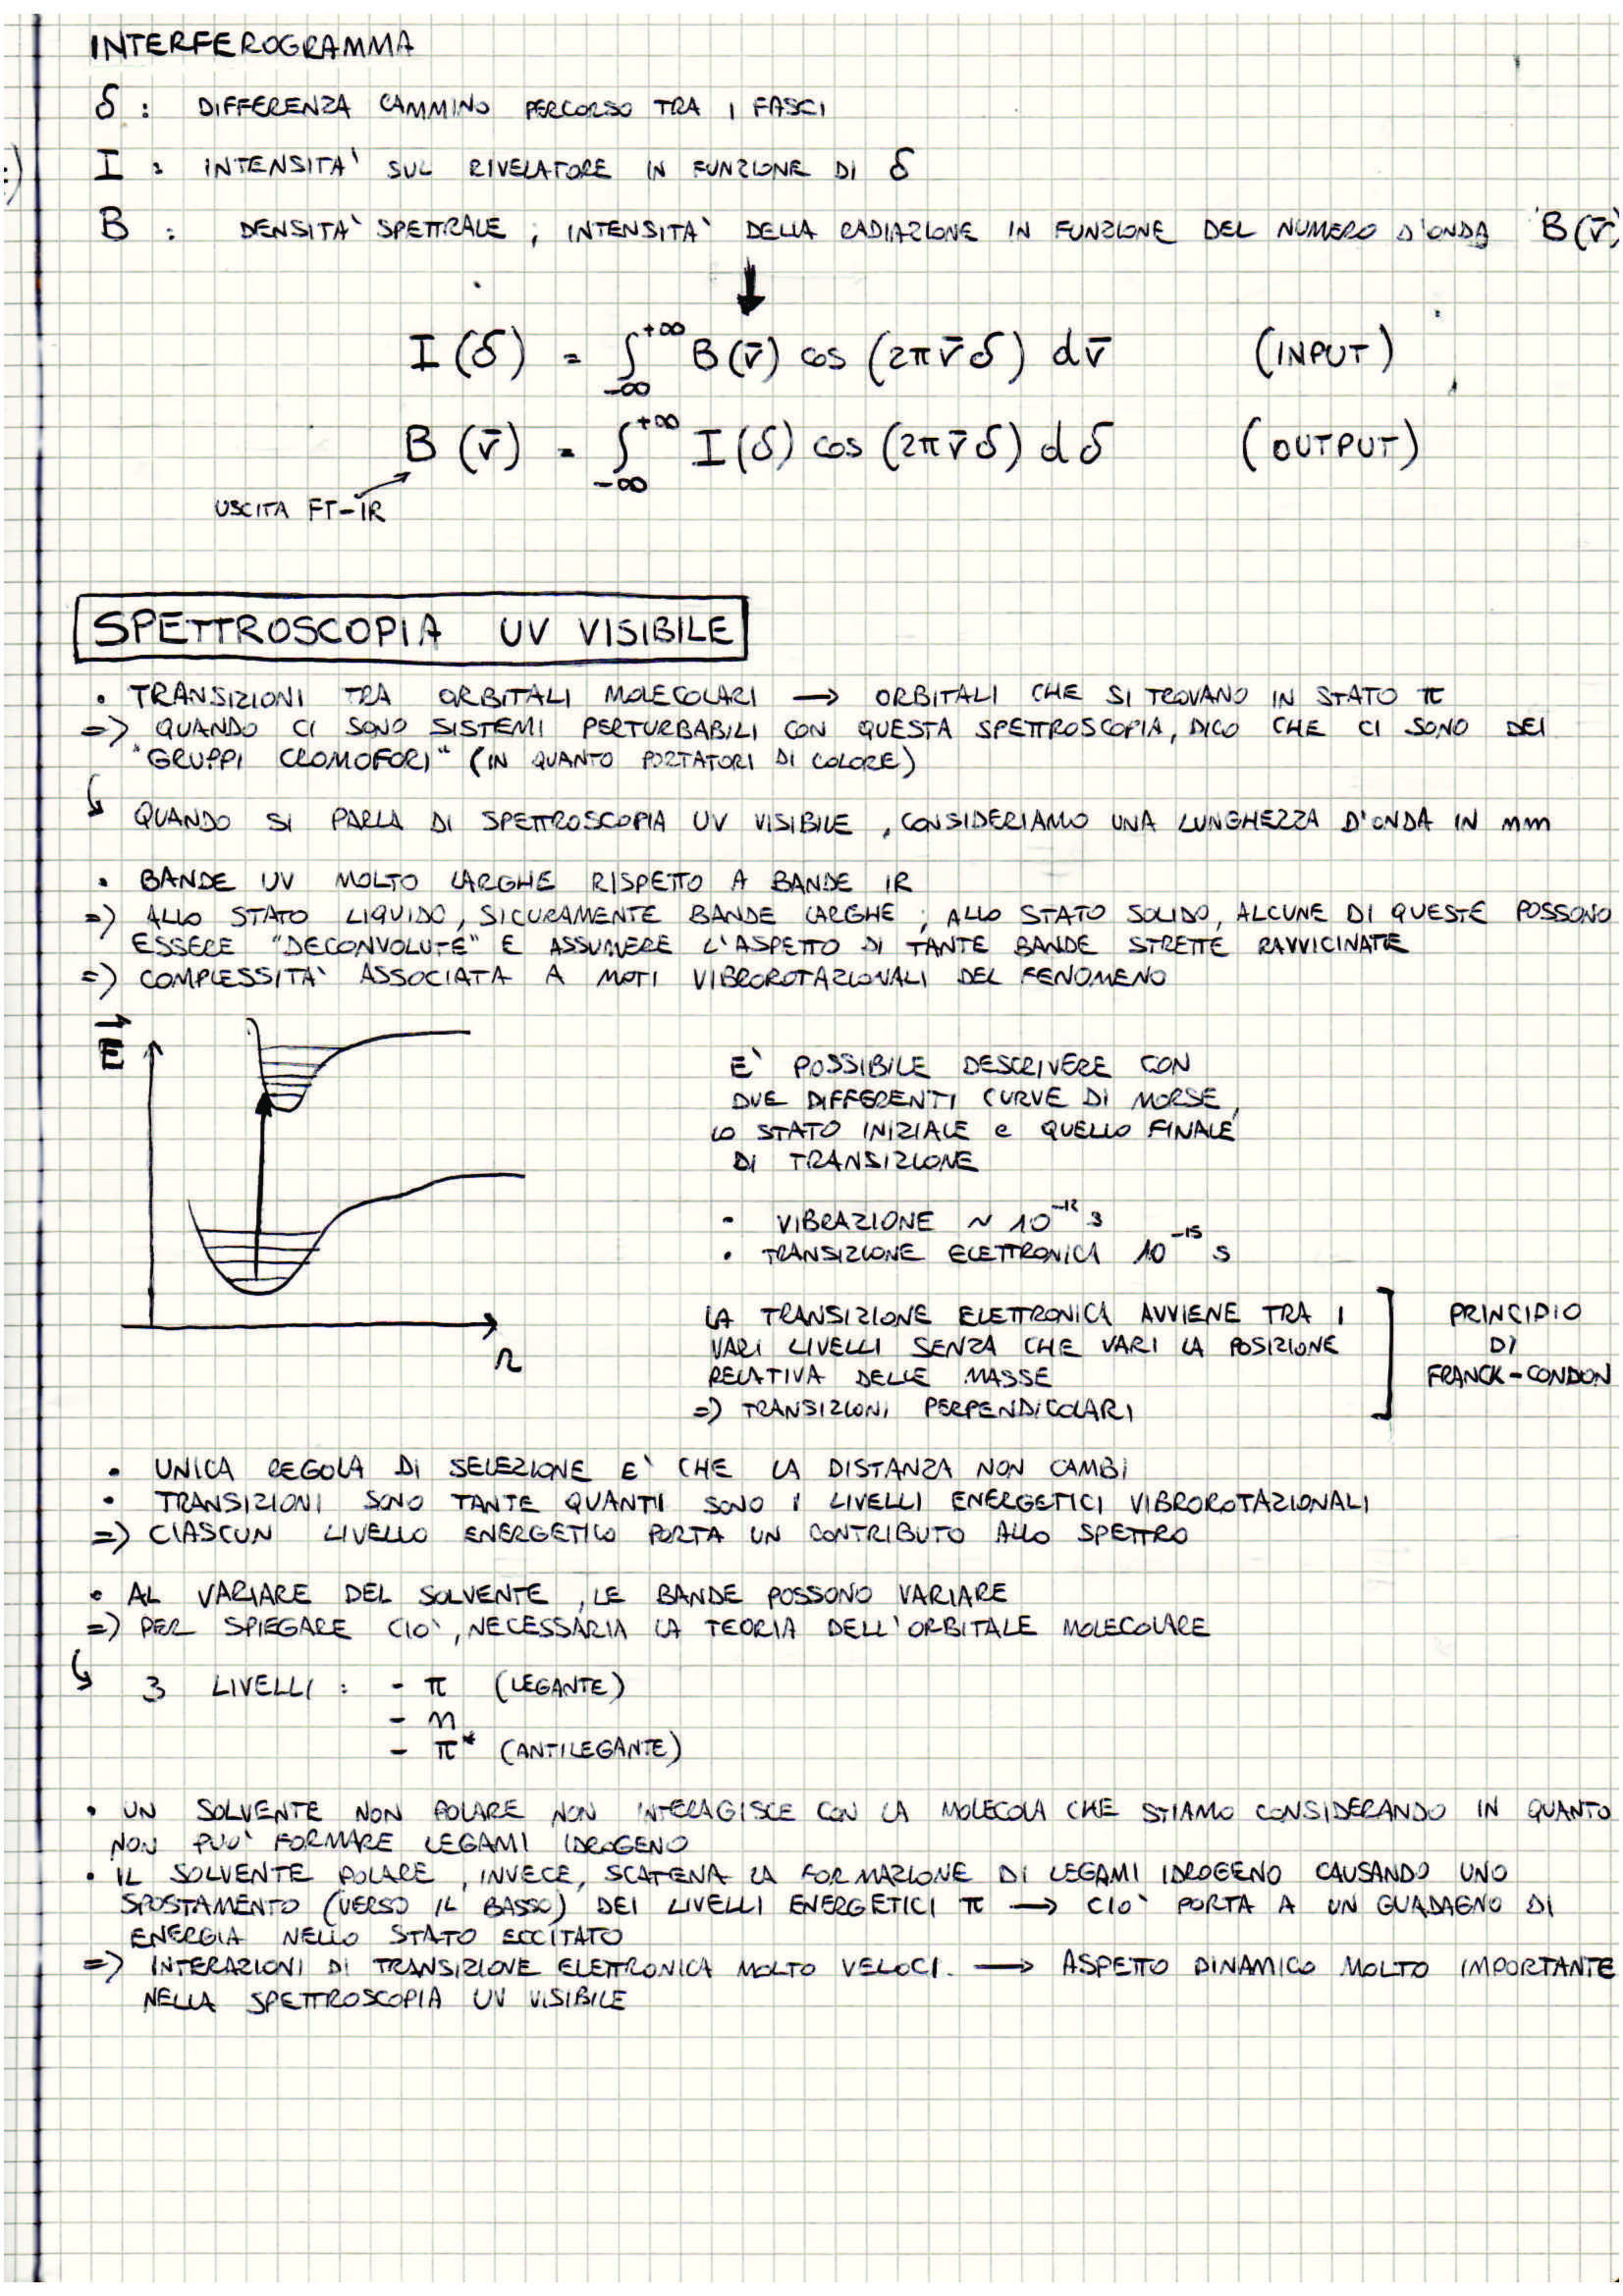 INTERFEROGRAMMA
δ : DIFFERENZA CAMMINO PERCORSO TRA I FASCI
I : INTENSITA' SUL RIVELATORE IN FUNZIONE DI δ
B : DENSITA' SPETTRALE ; INTENSITA' DELLA RADIAZIONE IN FUNZIONE DEL NUMERO D'ONDA B(ν̄)
↓
I(δ) = ∫_{-∞}^{+∞} B(ν̄) cos (2πν̄δ) dν̄ (INPUT)
B(ν̄) = ∫_{-∞}^{+∞} I(δ) cos (2πν̄δ) dδ (OUTPUT)
USCITA FT-IR
SPETTROSCOPIA UV VISIBILE
• TRANSIZIONI TRA ORBITALI MOLECOLARI → ORBITALI CHE SI TROVANO IN STATO π
=> QUANDO CI SONO SISTEMI PERTURBABILI CON QUESTA SPETTROSCOPIA, DICO CHE CI SONO DEI
"GRUPPI CROMOFORI" (IN QUANTO PORTATORI DI COLORE)
↳ QUANDO SI PARLA DI SPETTROSCOPIA UV VISIBILE, CONSIDERIAMO UNA LUNGHEZZA D'ONDA IN nm
• BANDE UV MOLTO LARGHE RISPETTO A BANDE IR
=> ALLO STATO LIQUIDO, SICURAMENTE BANDE LARGHE ; ALLO STATO SOLIDO, ALCUNE DI QUESTE POSSONO
ESSERE "DECONVOLUTE" E ASSUMERE L'ASPETTO DI TANTE BANDE STRETTE RAVVICINATE
=> COMPLESSITA' ASSOCIATA A MOTI VIBROROTAZIONALI DEL FENOMENO
E
r
E' POSSIBILE DESCRIVERE CON
DUE DIFFERENTI CURVE DI MORSE,
LO STATO INIZIALE e QUELLO FINALE
DI TRANSIZIONE
- VIBRAZIONE ~ 10^-12 s
• TRANSIZIONE ELETTRONICA 10^-15 s
LA TRANSIZIONE ELETTRONICA AVVIENE TRA I
VARI LIVELLI SENZA CHE VARI LA POSIZIONE
RELATIVA DELLE MASSE
=> TRANSIZIONI PERPENDICOLARI
PRINCIPIO
DI
FRANCK-CONDON
• UNICA REGOLA DI SELEZIONE E' CHE LA DISTANZA NON CAMBI
• TRANSIZIONI SONO TANTE QUANTI SONO I LIVELLI ENERGETICI VIBROROTAZIONALI
=> CIASCUN LIVELLO ENERGETICO PORTA UN CONTRIBUTO ALLO SPETTRO
• AL VARIARE DEL SOLVENTE, LE BANDE POSSONO VARIARE
=> PER SPIEGARE CIO', NECESSARIA LA TEORIA DELL'ORBITALE MOLECOLARE
↳ 3 LIVELLI : - π (LEGANTE)
- n
- π* (ANTILEGANTE)
• UN SOLVENTE NON POLARE NON INTERAGISCE CON LA MOLECOLA CHE STIAMO CONSIDERANDO IN QUANTO
NON PUO' FORMARE LEGAMI IDROGENO
• IL SOLVENTE POLARE, INVECE, SCATENA LA FORMAZIONE DI LEGAMI IDROGENO CAUSANDO UNO
SPOSTAMENTO (VERSO IL BASSO) DEI LIVELLI ENERGETICI π → CIO' PORTA A UN GUADAGNO DI
ENERGIA NELLO STATO ECCITATO
=> INTERAZIONI DI TRANSIZIONE ELETTRONICA MOLTO VELOCI. → ASPETTO DINAMICO MOLTO IMPORTANTE
NELLA SPETTROSCOPIA UV VISIBILE